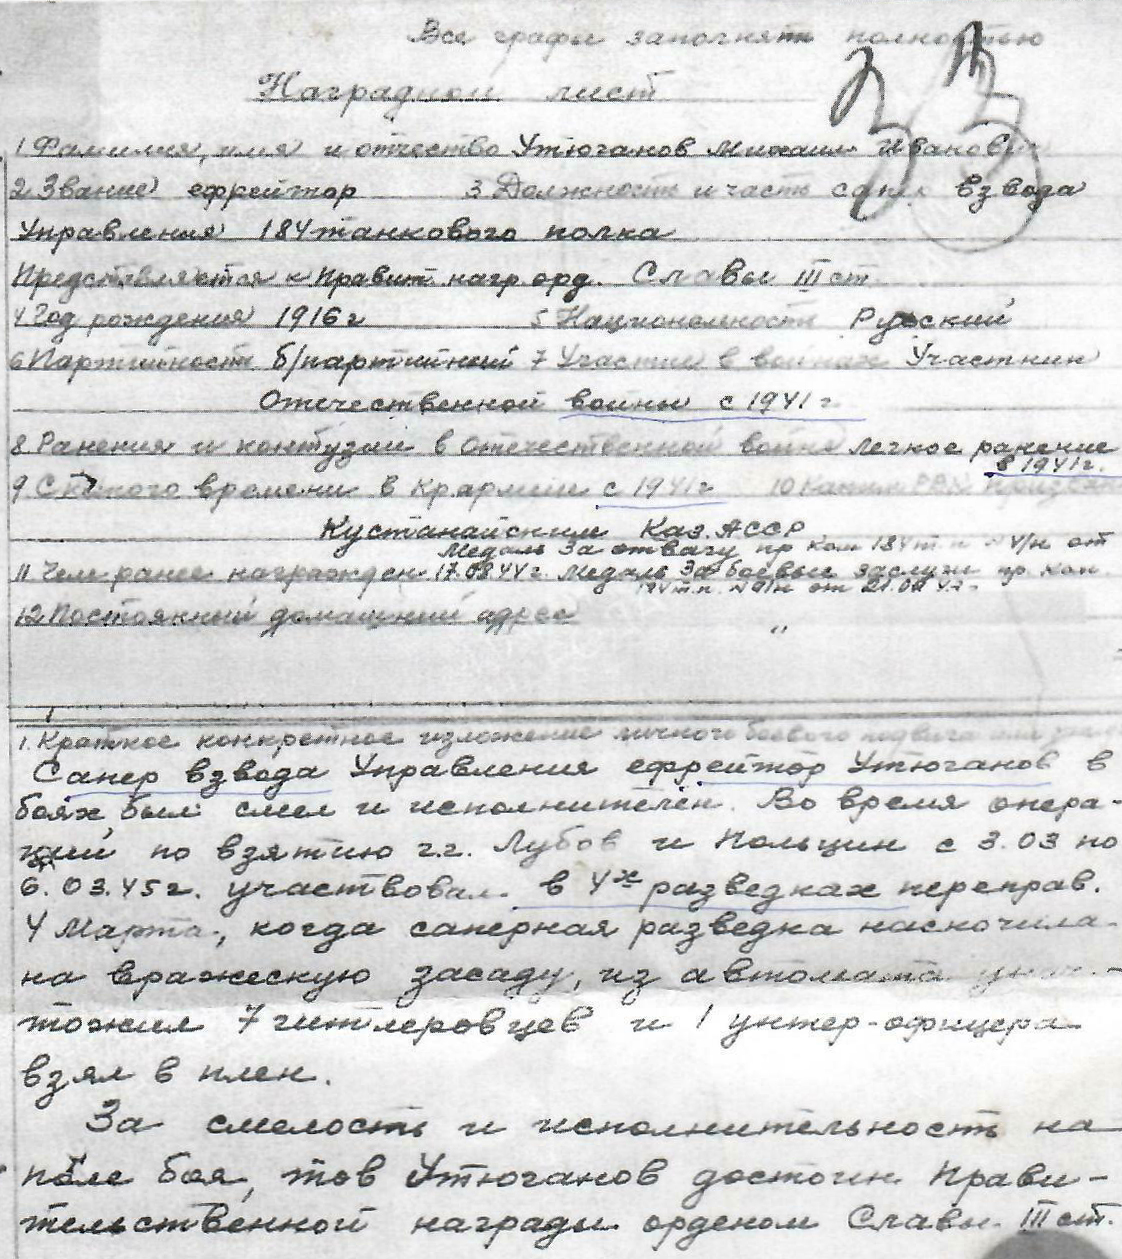 Все графы заполнять полностью
33
Наградной лист
1 Фамилия, имя и отчество Утюганов Михаил Иванович
2 Звание ефрейтор 3 Должность и часть сапер взвода
Управления 184 танкового полка
Представляется к Правит. нагр. орд. Славы III ст.
4 Год рождения 1916 г 5 Национальность Русский
6 Партийность б/партийный 7 Участие в войнах Участник
Отечественной войны с 1941 г.
8 Ранения и контузии в Отечественной войне легкое ранение
в 1941 г.
9 С какого времени в Кр. армии с 1941 г 10 Каким РВК призван
Кустанайским Каз. АССР
Медаль За отвагу пр ком 184 т.п. № 4/н от
11 Чем ранее награжден 17.08.44 г. Медаль За боевые заслуги пр. ком.
184 т.п. от
12 Постоянный домашний адрес "
1. Краткое конкретное изложение личного боевого подвига или
Сапер взвода Управления ефрейтор Утюганов в
боях был смел и исполнителен. Во время опера-
ций по взятию г.г. Лубов и Польцин с 3.03 по
6.03.45 г. участвовал в 4х разведках переправ.
4 Марта, когда саперная разведка наскочила
на вражескую засаду, из автомата унич-
тожил 7 гитлеровцев и 1 унтер-офицера
взял в плен.
За смелость и исполнительность на
поле боя, тов Утюганов достоин Прави-
тельственной награды орденом Славы III ст.